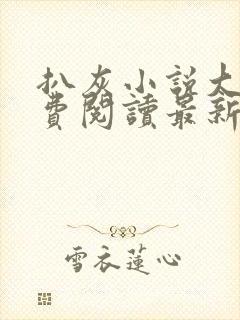 扒灰小說大
費閱讀最新
雪衣蓮心